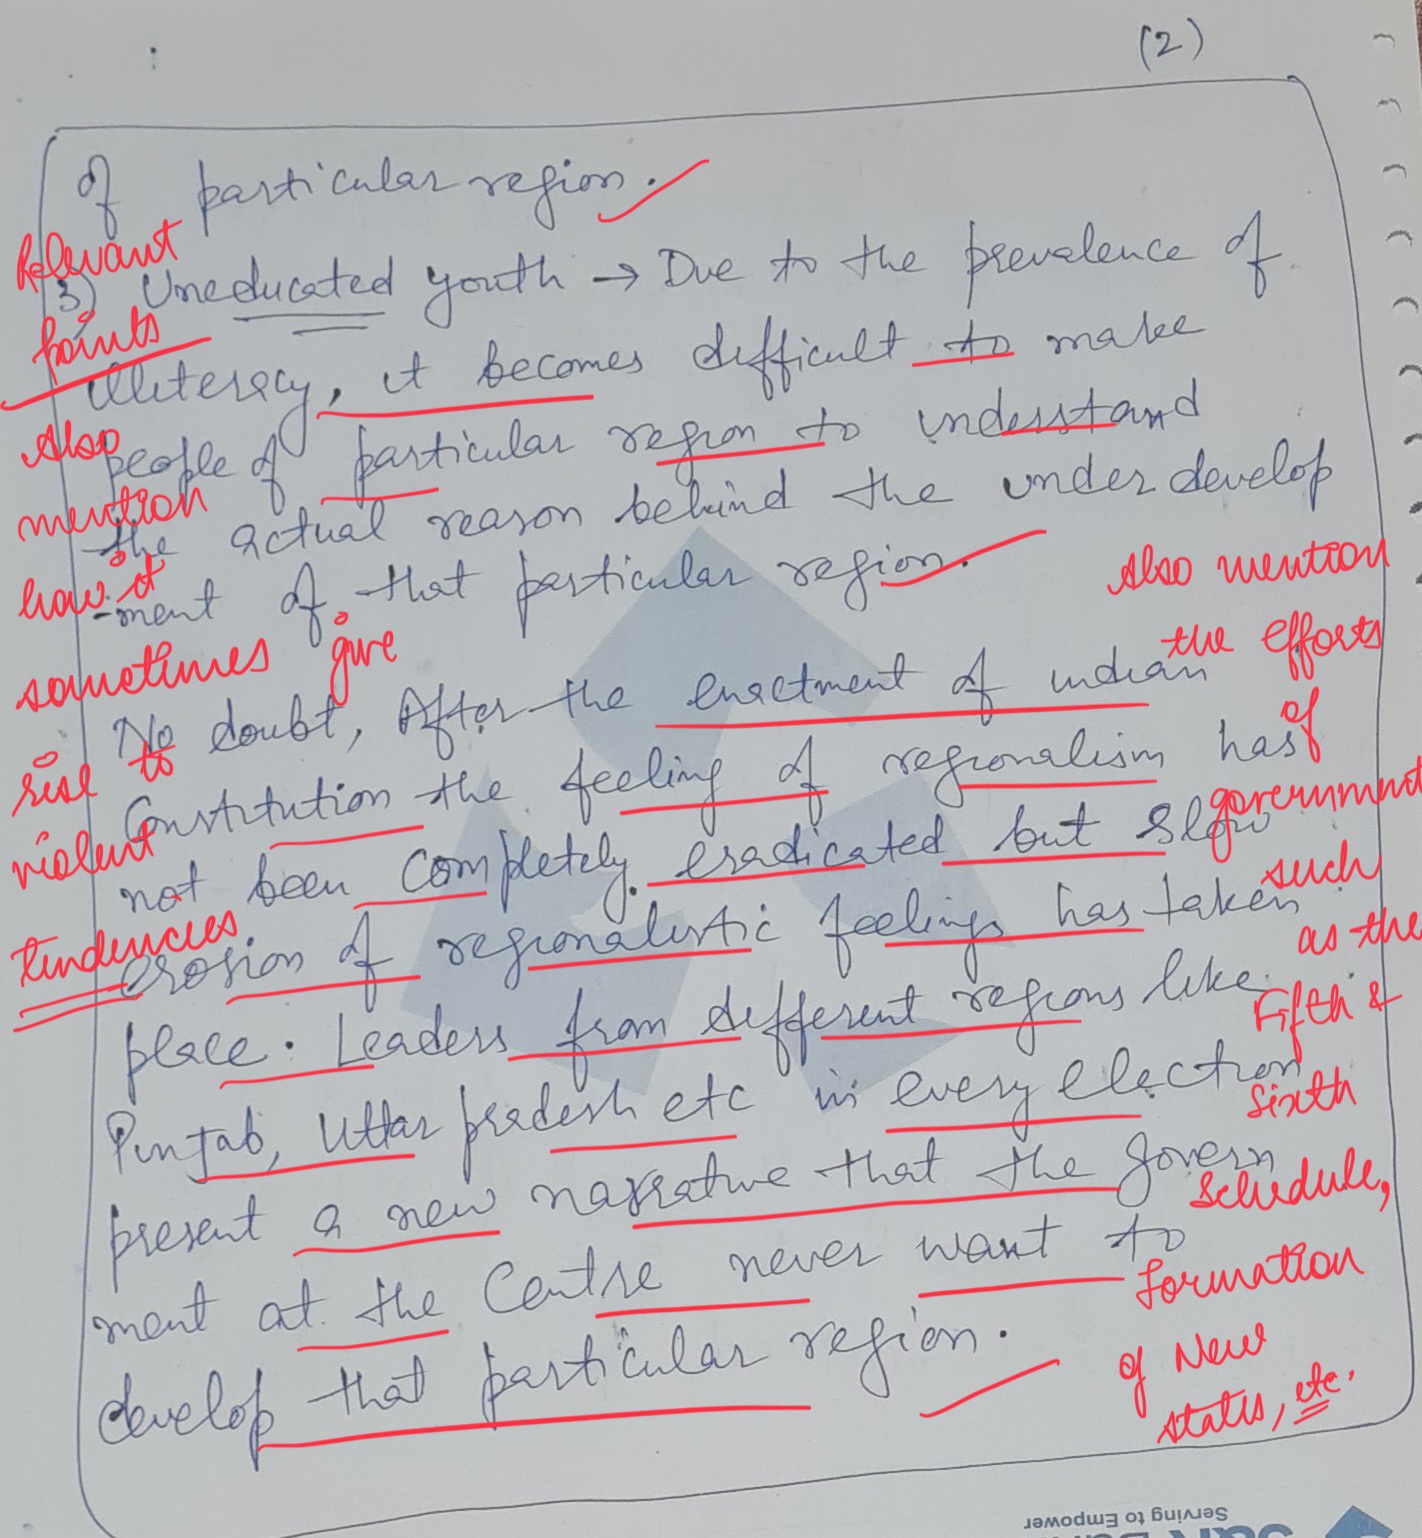 (2)
of particular region.
3) Uneducated youth → Due to the prevalence of
illiteracy, it becomes difficult to make
people of particular region to understand
the actual reason behind the under develop
-ment of that particular region.
No doubt, After the enactment of indian
Constitution the feeling of regionalism has
not been completely eradicated but slow
erosion of regionalistic feelings has taken
place. Leaders from different regions like
Punjab, Uttar pradesh etc in every election
present a new narrative that the govern
ment at the Centre never want to
develop that particular region.
Relevant
points
Also
mention
how it
sometimes give
rise to
violent
tendencies
Also mention
the efforts
of
government
such
as the
Fifth &
Sixth
Schedule,
formation
of New
states, etc.
Serving to Empower